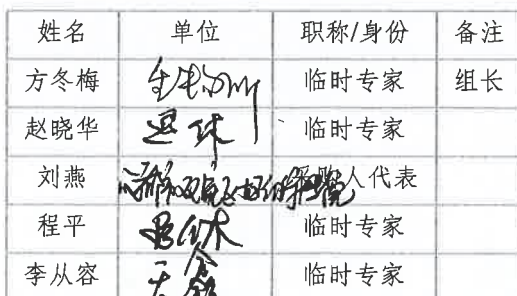 姓名 单位 职称/身份 备注
方冬梅 临时专家 组长
赵晓华 退休 临时专家
刘燕 人代表
程平 退休 临时专家
李从容 临时专家